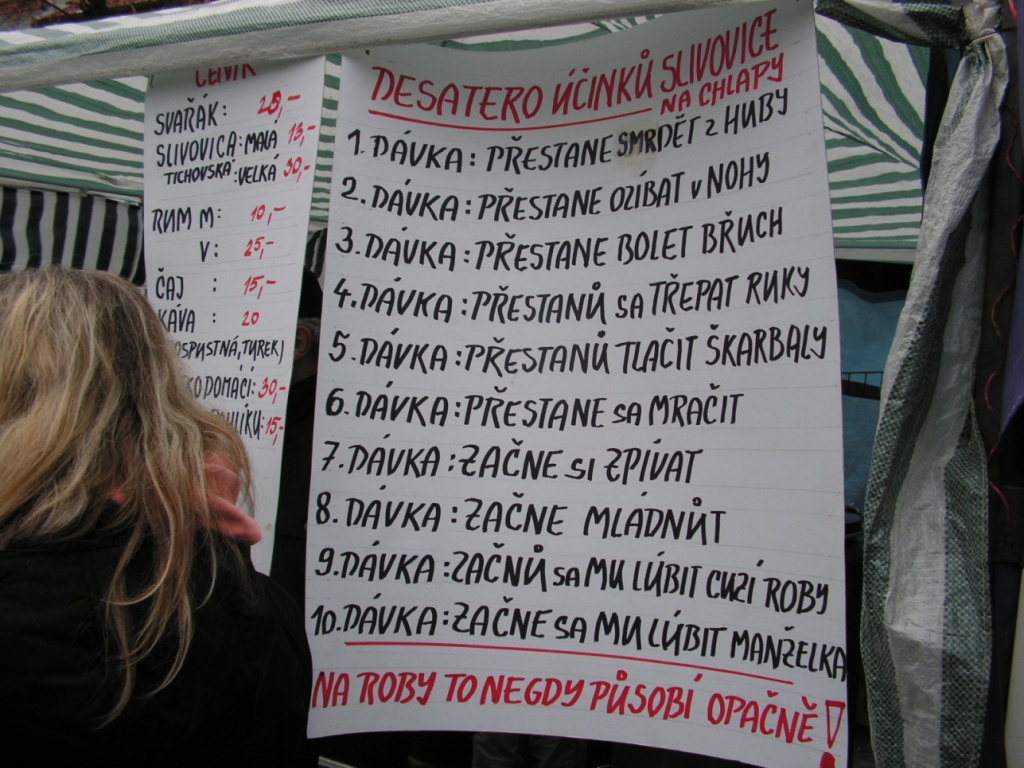 CENÍK
SVAŘÁK: 25,–
SLIVOVICA: MALÁ 13,–
TICHOVSKÁ: VELKÁ 30,–
RUM M: 10,–
V: 25,–
ČAJ : 15,–
KÁVA : 20
DOMÁCÍ: 30,–
15,–
DESATERO ÚČINKŮ SLIVOVICE
NA CHLAPY
1. DÁVKA: PŘESTANE SMRDĚT z HUBY
2. DÁVKA: PŘESTANE OZÍBAT v NOHY
3. DÁVKA: PŘESTANE BOLET BŘUCH
4. DÁVKA: PŘESTANŮ sa TŘEPAT RUKY
5. DÁVKA: PŘESTANŮ TLAČIT ŠKARBALY
6. DÁVKA: PŘESTANE sa MRAČIT
7. DÁVKA: ZAČNE si ZPÍVAT
8. DÁVKA: ZAČNE MLÁDNŮT
9. DÁVKA: ZAČNŮ sa MU LÚBIT CUZÍ ROBY
10. DÁVKA: ZAČNE sa MU LÚBIT MANŽELKA
NA ROBY TO NEGDY PŮSOBÍ OPAČNĚ!